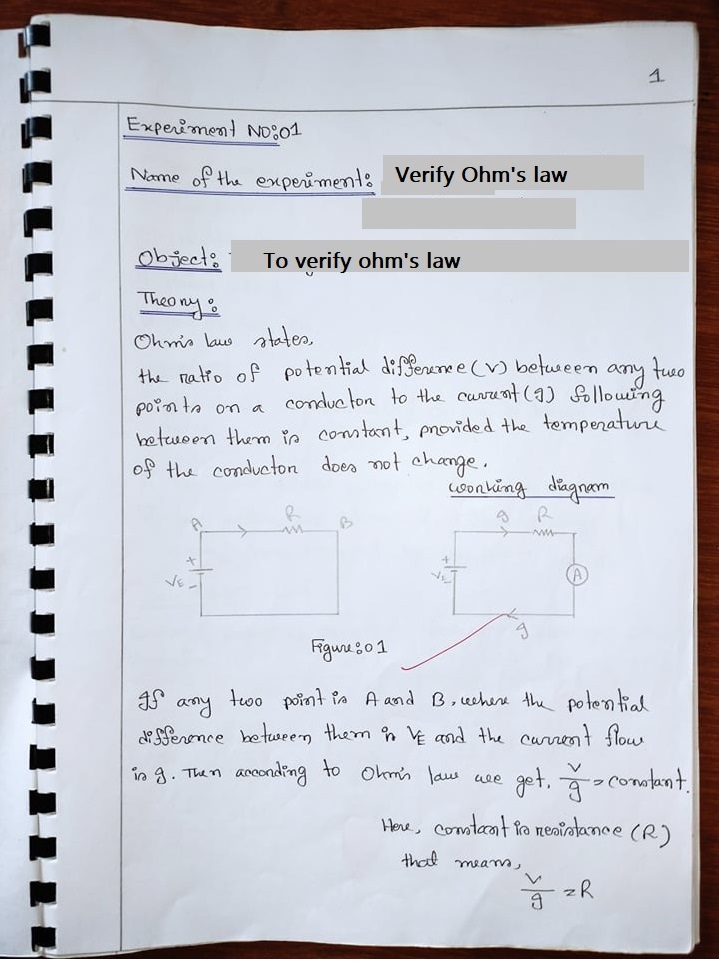 1
Experiment NO:01
Name of the experiment: Verify Ohm's law
Object: To verify ohm's law
Theory:
Ohm's law states,
the ratio of potential difference (V) between any two
points on a conductor to the current (I) following
between them is constant, provided the temperature
of the conductor does not change.
working diagram
A R B
+
VE -
I R
+
VE -
A
I
Figure:01
If any two point is A and B, where the potential
difference between them is VE and the current flow
is I. Then according to Ohm's law we get, V/I = constant.
Here, constant is resistance (R)
that means,
V/I = R